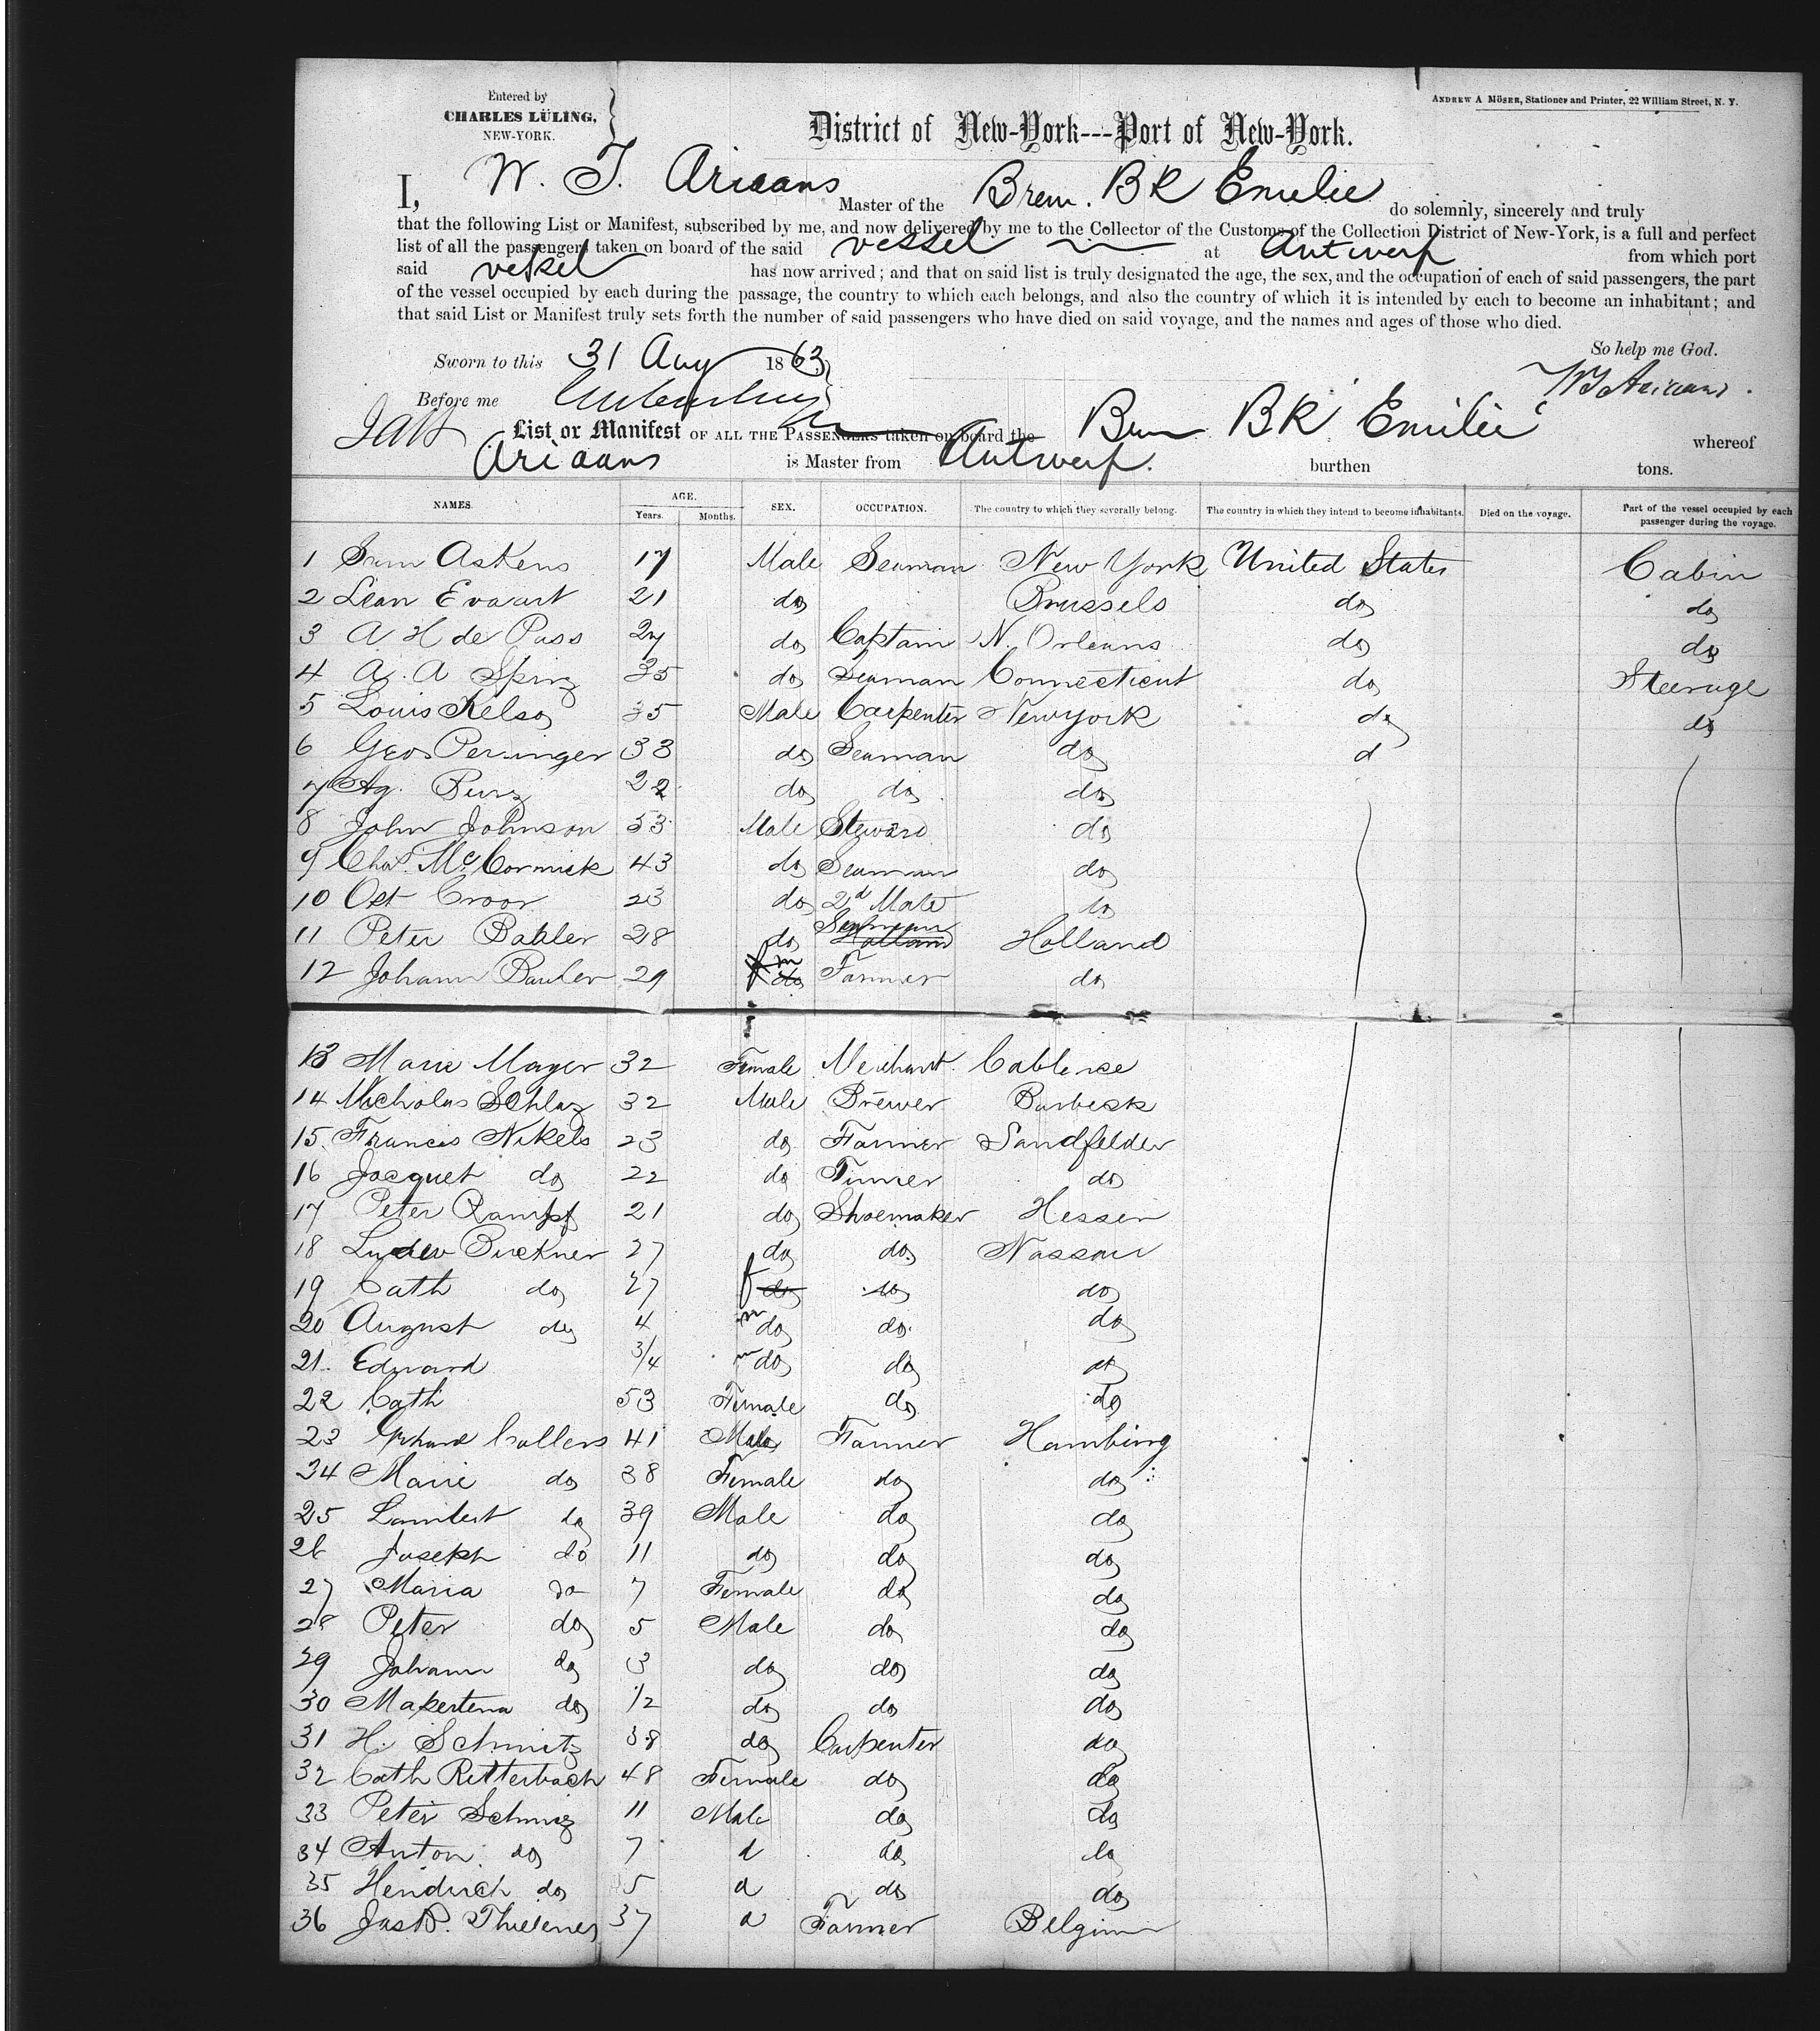 Entered by
CHARLES LÜLING,
NEW-YORK.
ANDREW A MÖSER, Stationer and Printer, 22 William Street, N. Y.
District of New-York---Port of New-York.
I, W. T. Ariaans Master of the Brem. BK Emilie do solemnly, sincerely and truly
that the following List or Manifest, subscribed by me, and now delivered by me to the Collector of the Customs of the Collection District of New-York, is a full and perfect
list of all the passengers taken on board of the said vessel at Antwerp from which port
said vessel has now arrived; and that on said list is truly designated the age, the sex, and the occupation of each of said passengers, the part
of the vessel occupied by each during the passage, the country to which each belongs, and also the country of which it is intended by each to become an inhabitant; and
that said List or Manifest truly sets forth the number of said passengers who have died on said voyage, and the names and ages of those who died.
So help me God.
Sworn to this 31 Aug 1863
WT Ariaans.
Before me
List or Manifest OF ALL THE PASSENGERS taken on board the Brem BK Emilie whereof
Ariaans is Master from Antwerp. burthen tons.
NAMES. AGE. Years. Months. SEX. OCCUPATION. The country to which they severally belong. The country in which they intend to become inhabitants. Died on the voyage. Part of the vessel occupied by each passenger during the voyage.
1 Sam Askens 17 Male Seaman New York United States Cabin
2 Léan Evaart 21 do Brussels do do
3 A H de Pass 27 do Captain N. Orleans do do
4 A. A Spinz 35 do Seaman Connecticut do Steerage
5 Louis Kelso 35 Male Carpenter Newyork do do
6 Geo Peringer 33 do Seaman do d
7 Ag. 22 do do do
8 John Johnson 53 Male Steward do
9 Chas McCormick 43 do Seaman do
10 Ost Croor 23 do 2d Mate do
11 Peter Bakler 28 do Seaman Holland Holland
12 Johann Bauler 29 f m do Farmer do
13 Marie Mayer 32 Female Merchant Coblence
14 Nicholas Schlaz 32 Male Brewer Burbeck
15 Francis Nikels 23 do Farmer Sandfelder
16 Jacquet do 22 do do
17 Peter Rampf 21 do Shoemaker Hessen
18 Buckner 27 do do Nassau
19 Cath do 27 f do do do
20 August do 4 m do do do
21. Edward 3/4 m do do do
22 Cath 53 Female do do
23 Collens 41 Male Farmer Hamburg
24 Marie do 38 Female do do
25 Lambert do 39 Male do do
26 Joseph do 11 do do do
27 Maria do 7 Female do do
28 Peter do 5 Male do do
29 Johann do 3 do do do
30 do 1/2 do do do
31 H. Schmitz 38 do Carpenter do
32 Cath Ritterbach 48 Female do do
33 Peter Schmiz 11 Male do do
34 Anton do 7 d do do
35 Hendrich do 5 d do do
36 Jas B. Thielenes 37 d Farmer Belgium